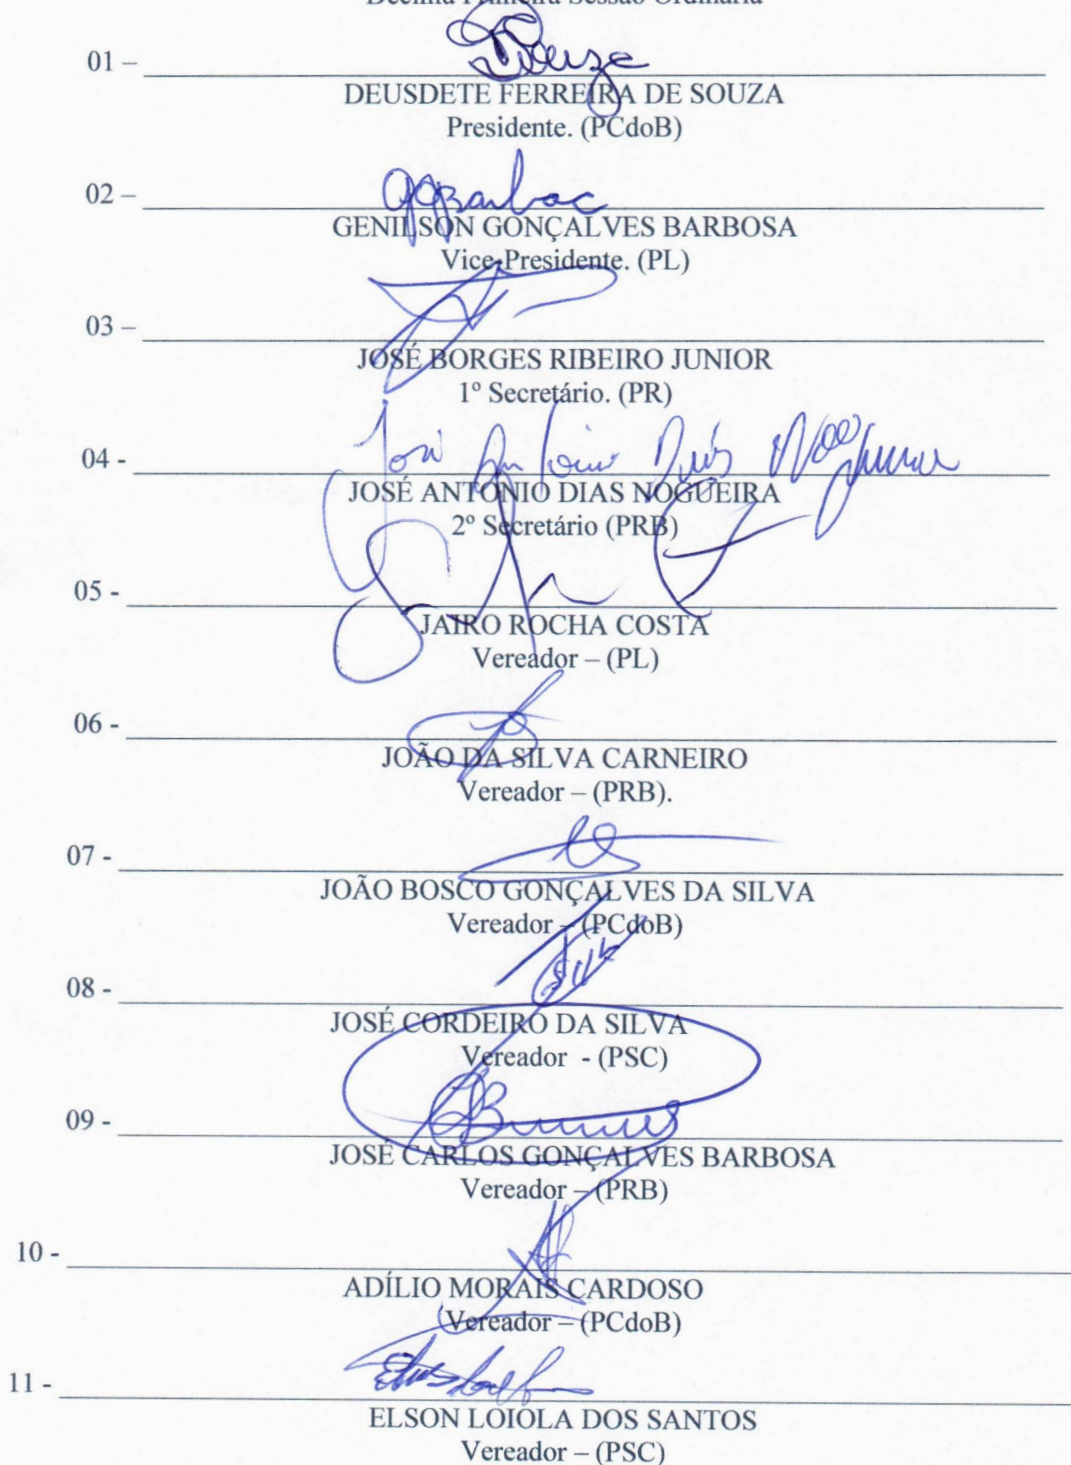 Décima Primeira Sessão Ordinária
01 –
Souza
DEUSDETE FERREIRA DE SOUZA
Presidente. (PCdoB)
02 –
GGBarbosa
GENILSON GONÇALVES BARBOSA
Vice-Presidente. (PL)
03 –
JOSÉ BORGES RIBEIRO JUNIOR
1º Secretário. (PR)
José Antonio Dias Nogueira
04 -
JOSÉ ANTÔNIO DIAS NOGUEIRA
2º Secretário (PRB)
05 -
JAIRO ROCHA COSTA
Vereador – (PL)
06 -
JOÃO DA SILVA CARNEIRO
Vereador – (PRB).
07 -
JOÃO BOSCO GONÇALVES DA SILVA
Vereador – (PCdoB)
08 -
JOSÉ CORDEIRO DA SILVA
Vereador - (PSC)
09 -
JOSÉ CARLOS GONÇALVES BARBOSA
Vereador – (PRB)
10 -
ADÍLIO MORAIS CARDOSO
Vereador – (PCdoB)
11 -
ELSON LOIOLA DOS SANTOS
Vereador – (PSC)